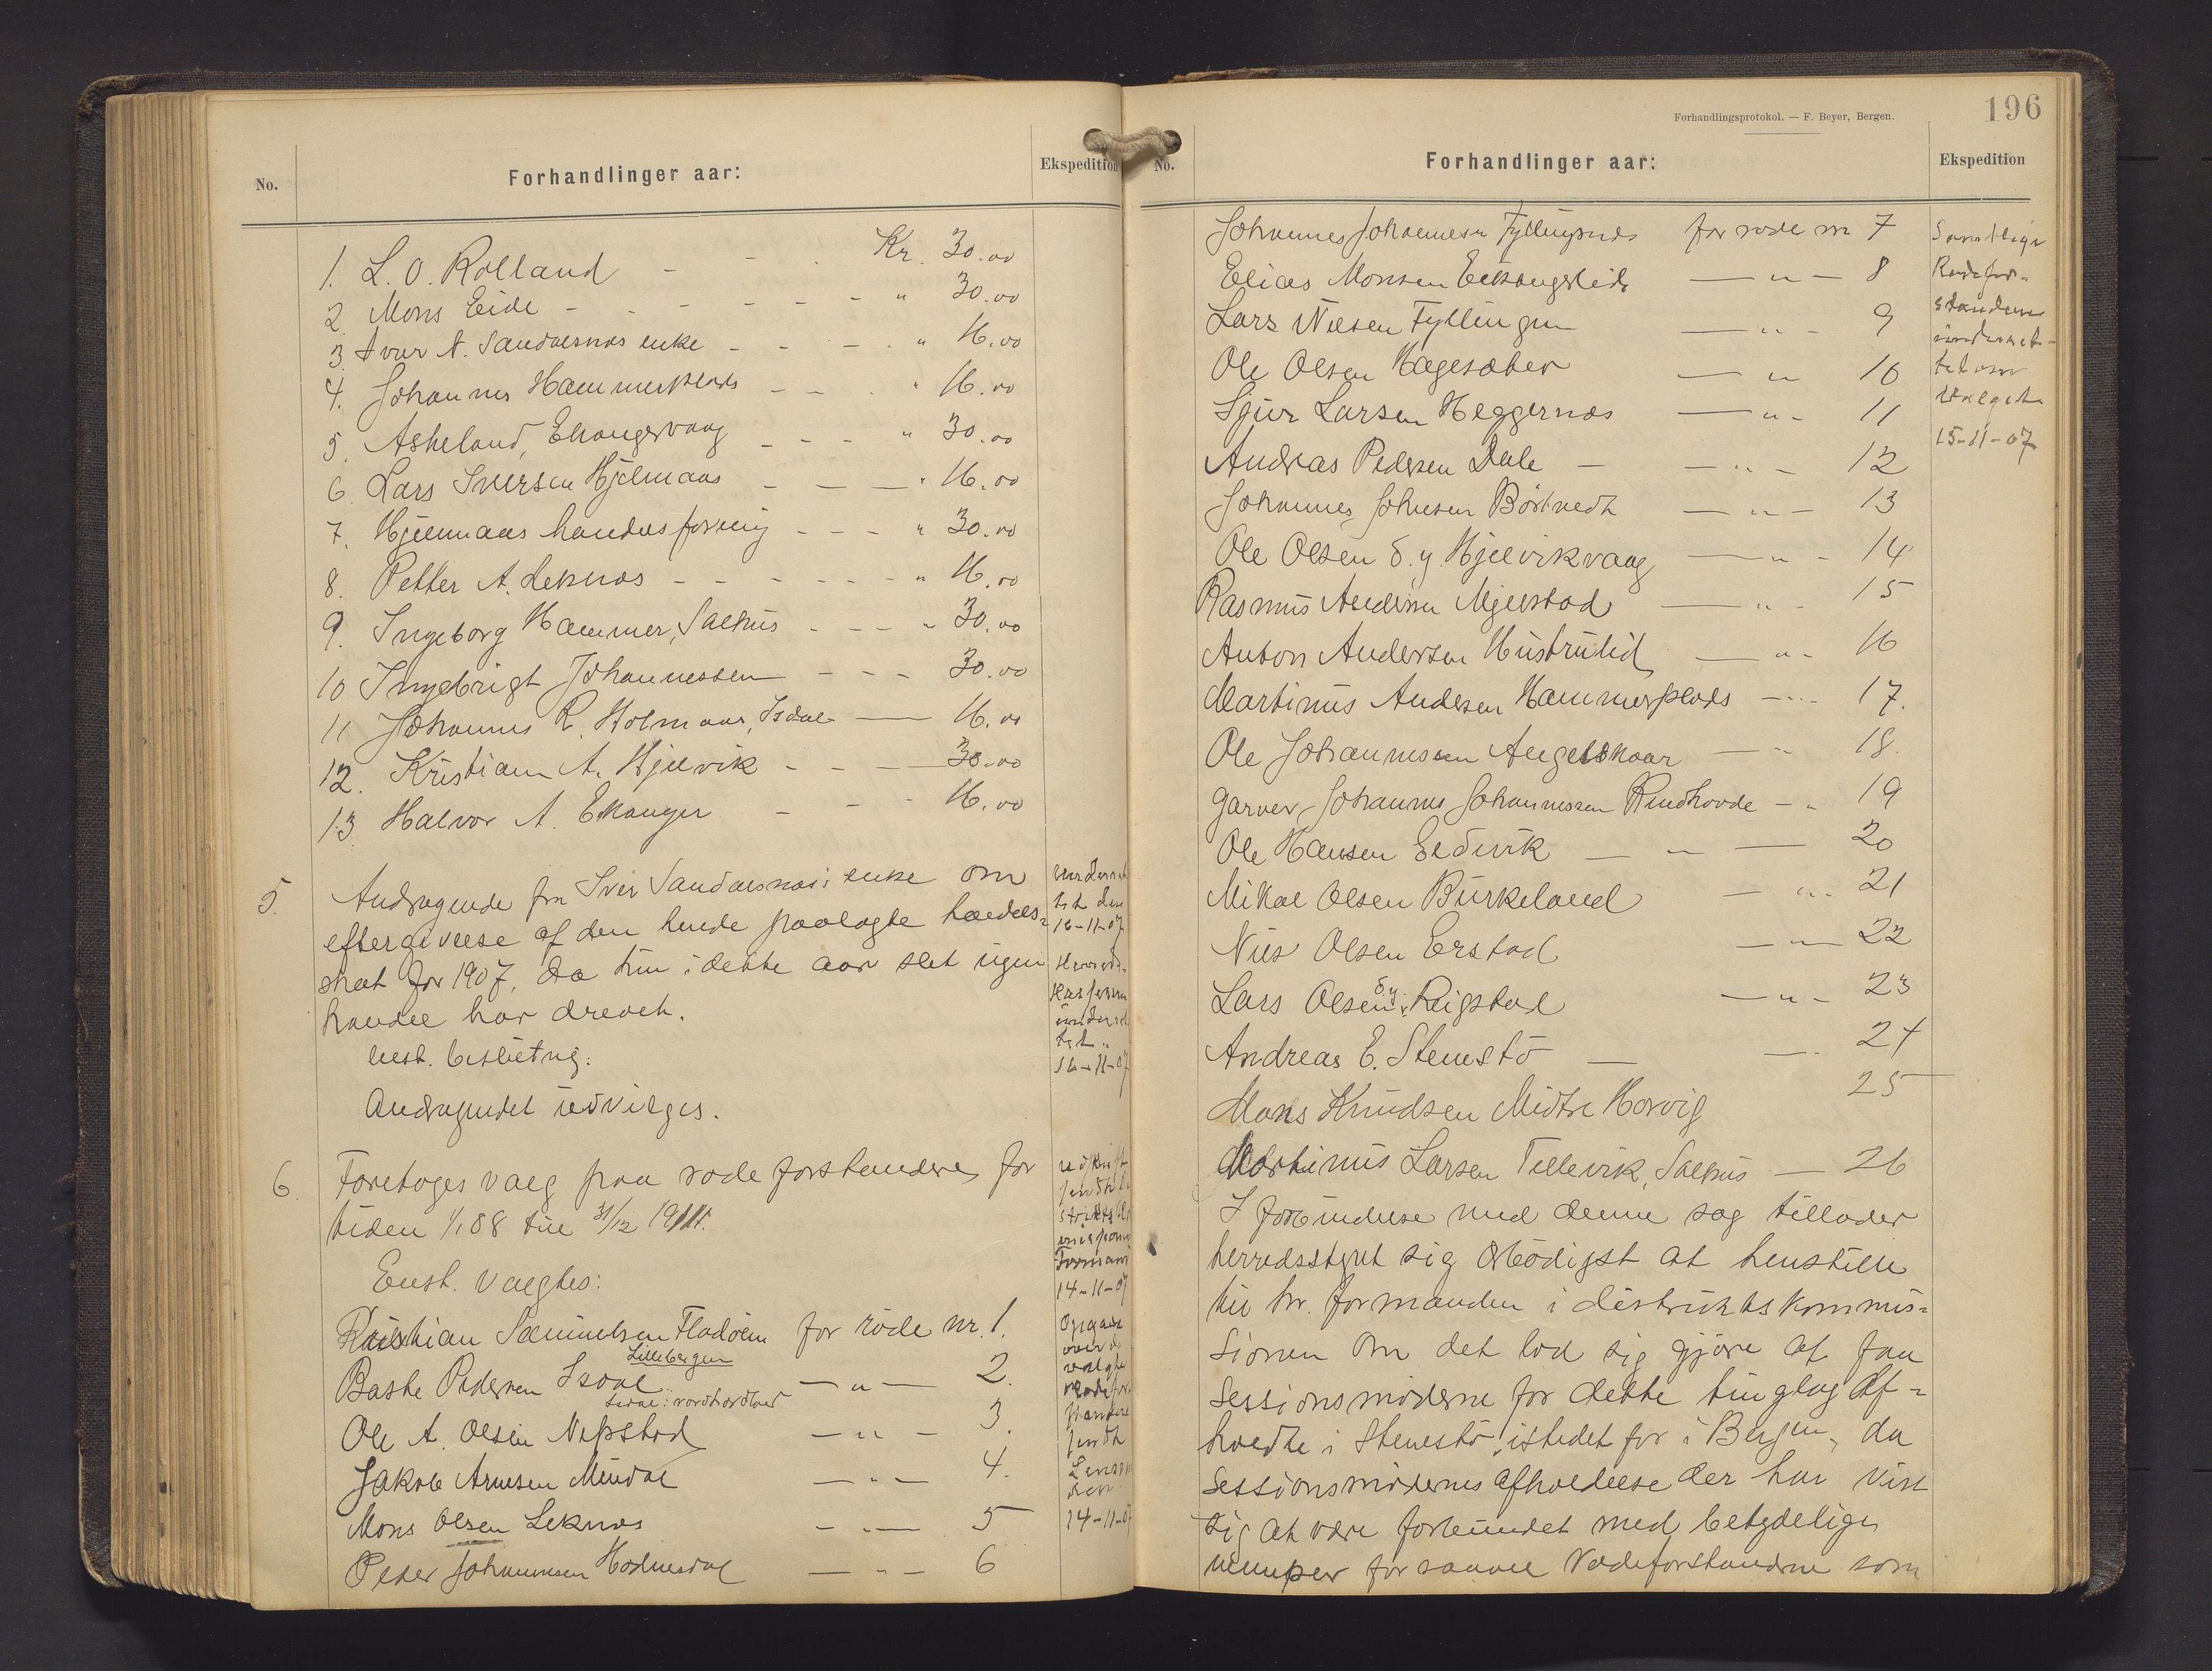 No.
Forhandlinger aar:
Ekspedition
1. L. O. Rolland - - . Kr. 30.00
2. Mons Eide - - - - - - " 30.00
3. Iver N. Sandvesnæs enke - - - - . " 16.00
4. Johannes Hammerplads - - . " 16.00
5. Askeland, Ekangervaag - - - " 30.00
6. Lars Iversen Hjelmaas - - - " 16.00
7. Hjelmaas handelsforening - - - " 30.00
8. Petter A. Leknæs - - - - - - " 16.00
9. Ingeborg Hammer, Salhus - - - " 30.00
10 Ingebrigt Johannessen - - - 30.00
11 Johannes R. Holmaas, Isdal - 16.00
12. Kristian A. Hjelvik - - - 30.00
13 Halvor A. Ekanger - - - 16.00
5. Andragende fra Iver Sandvesnæs's enke om
eftergivelse af den hende paalagte handels=
skat for 1907, da hun i dette aar slet ingen
handel har drevet.
Enst. beslutning:
Andragendet indvilges.
underret
tet den
16-11-07
Herreds-
kasseren
underret
tet "
16-11-07
6. Foretoges valg paa rodeforstandere for
tiden 1/1 08 til 31/12 1911.
Enst. valgtes:
Kristian Samuelsen Fladøen for rode nr. 1.
Lillebergen
Baste Pedersen Isdal — " — 2.
Isdal: nordhordland
Ole A. Olsen Nepstad — " — 3.
Jakob Arnesen Mundal — " — 4.
Mons Olsen Leknæs - " — 5
Peder Johannesen Hodnesdal — " — 6
udskrift
sendt
14-11-07
Opgave
over de
valgte
rodefor-
standere
sendt
Lensm
14-11-07
Forhandlingsprotokol. — F. Beyer, Bergen.
196
No.
Forhandlinger aar:
Ekspedition
Johannes Johannesen Fyllingsnes for rode nr 7
Elias Monsen Eikangerlid — " — 8
Lars Nilsen Fyllingen — " - 9
Ole Olsen Hagesæter — " 10
Sjur Larsen Heggernæs — " - 11
Andreas Pedersen Dale — — " - 12
Johannes Johnsen Børtvedt — " — 13
Ole Olsen d.y. Hjelvikvaag — " - 14
Rasmus Andersen Mjelstad — " - 15
Anton Andersen Hustrulid — " - 16
Martinus Andersen Hammerplads — " - 17.
Ole Johannessen Angelskaar — " 18.
Garver Johannes Johannessen Rundhovde - " 19
Ole Hansen Eldsvik — " — 20
Mikal Olsen Birkeland — " - 21
Nils Olsen Erstad — " — 22
Lars Olsen d.y. Reigstad — " - 23
Andreas E. Stenestø — — 24
Mons Knudsen Midtre Horvig 25
Martinus Larsen Tellevik, Salhus — 26
I forbindelse med denne sag tillader
herredsstyret sig ærbødigst at henstille
til hr. formanden i distriktskommis=
sionen om det lod sig gjøre at faa
sessionsmøderne for dette tinglag af=
holdte i Stenestø, istedet for i Bergen, da
sessionsmødernes afholdelse der har vist
sig at være forbundet med betydelige
ulemper for saavel rodeforstandrne som
Samtlige
Rodefor-
standere
underret-
tet om
valget
15-11-07